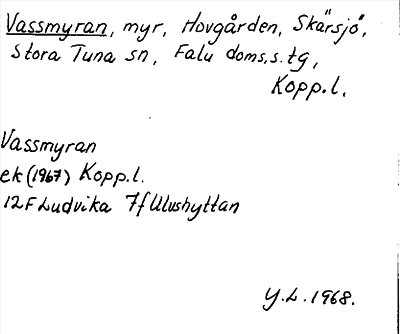 Vassmyran, myr, Hovgården, Skärsjö,
Stora Tuna sn, Falu doms.s.tg,
Kopp.l.
Vassmyran
ek (1967) Kopp.l.
12F Ludvika 7f Ulvshyttan
Y.L. 1968.